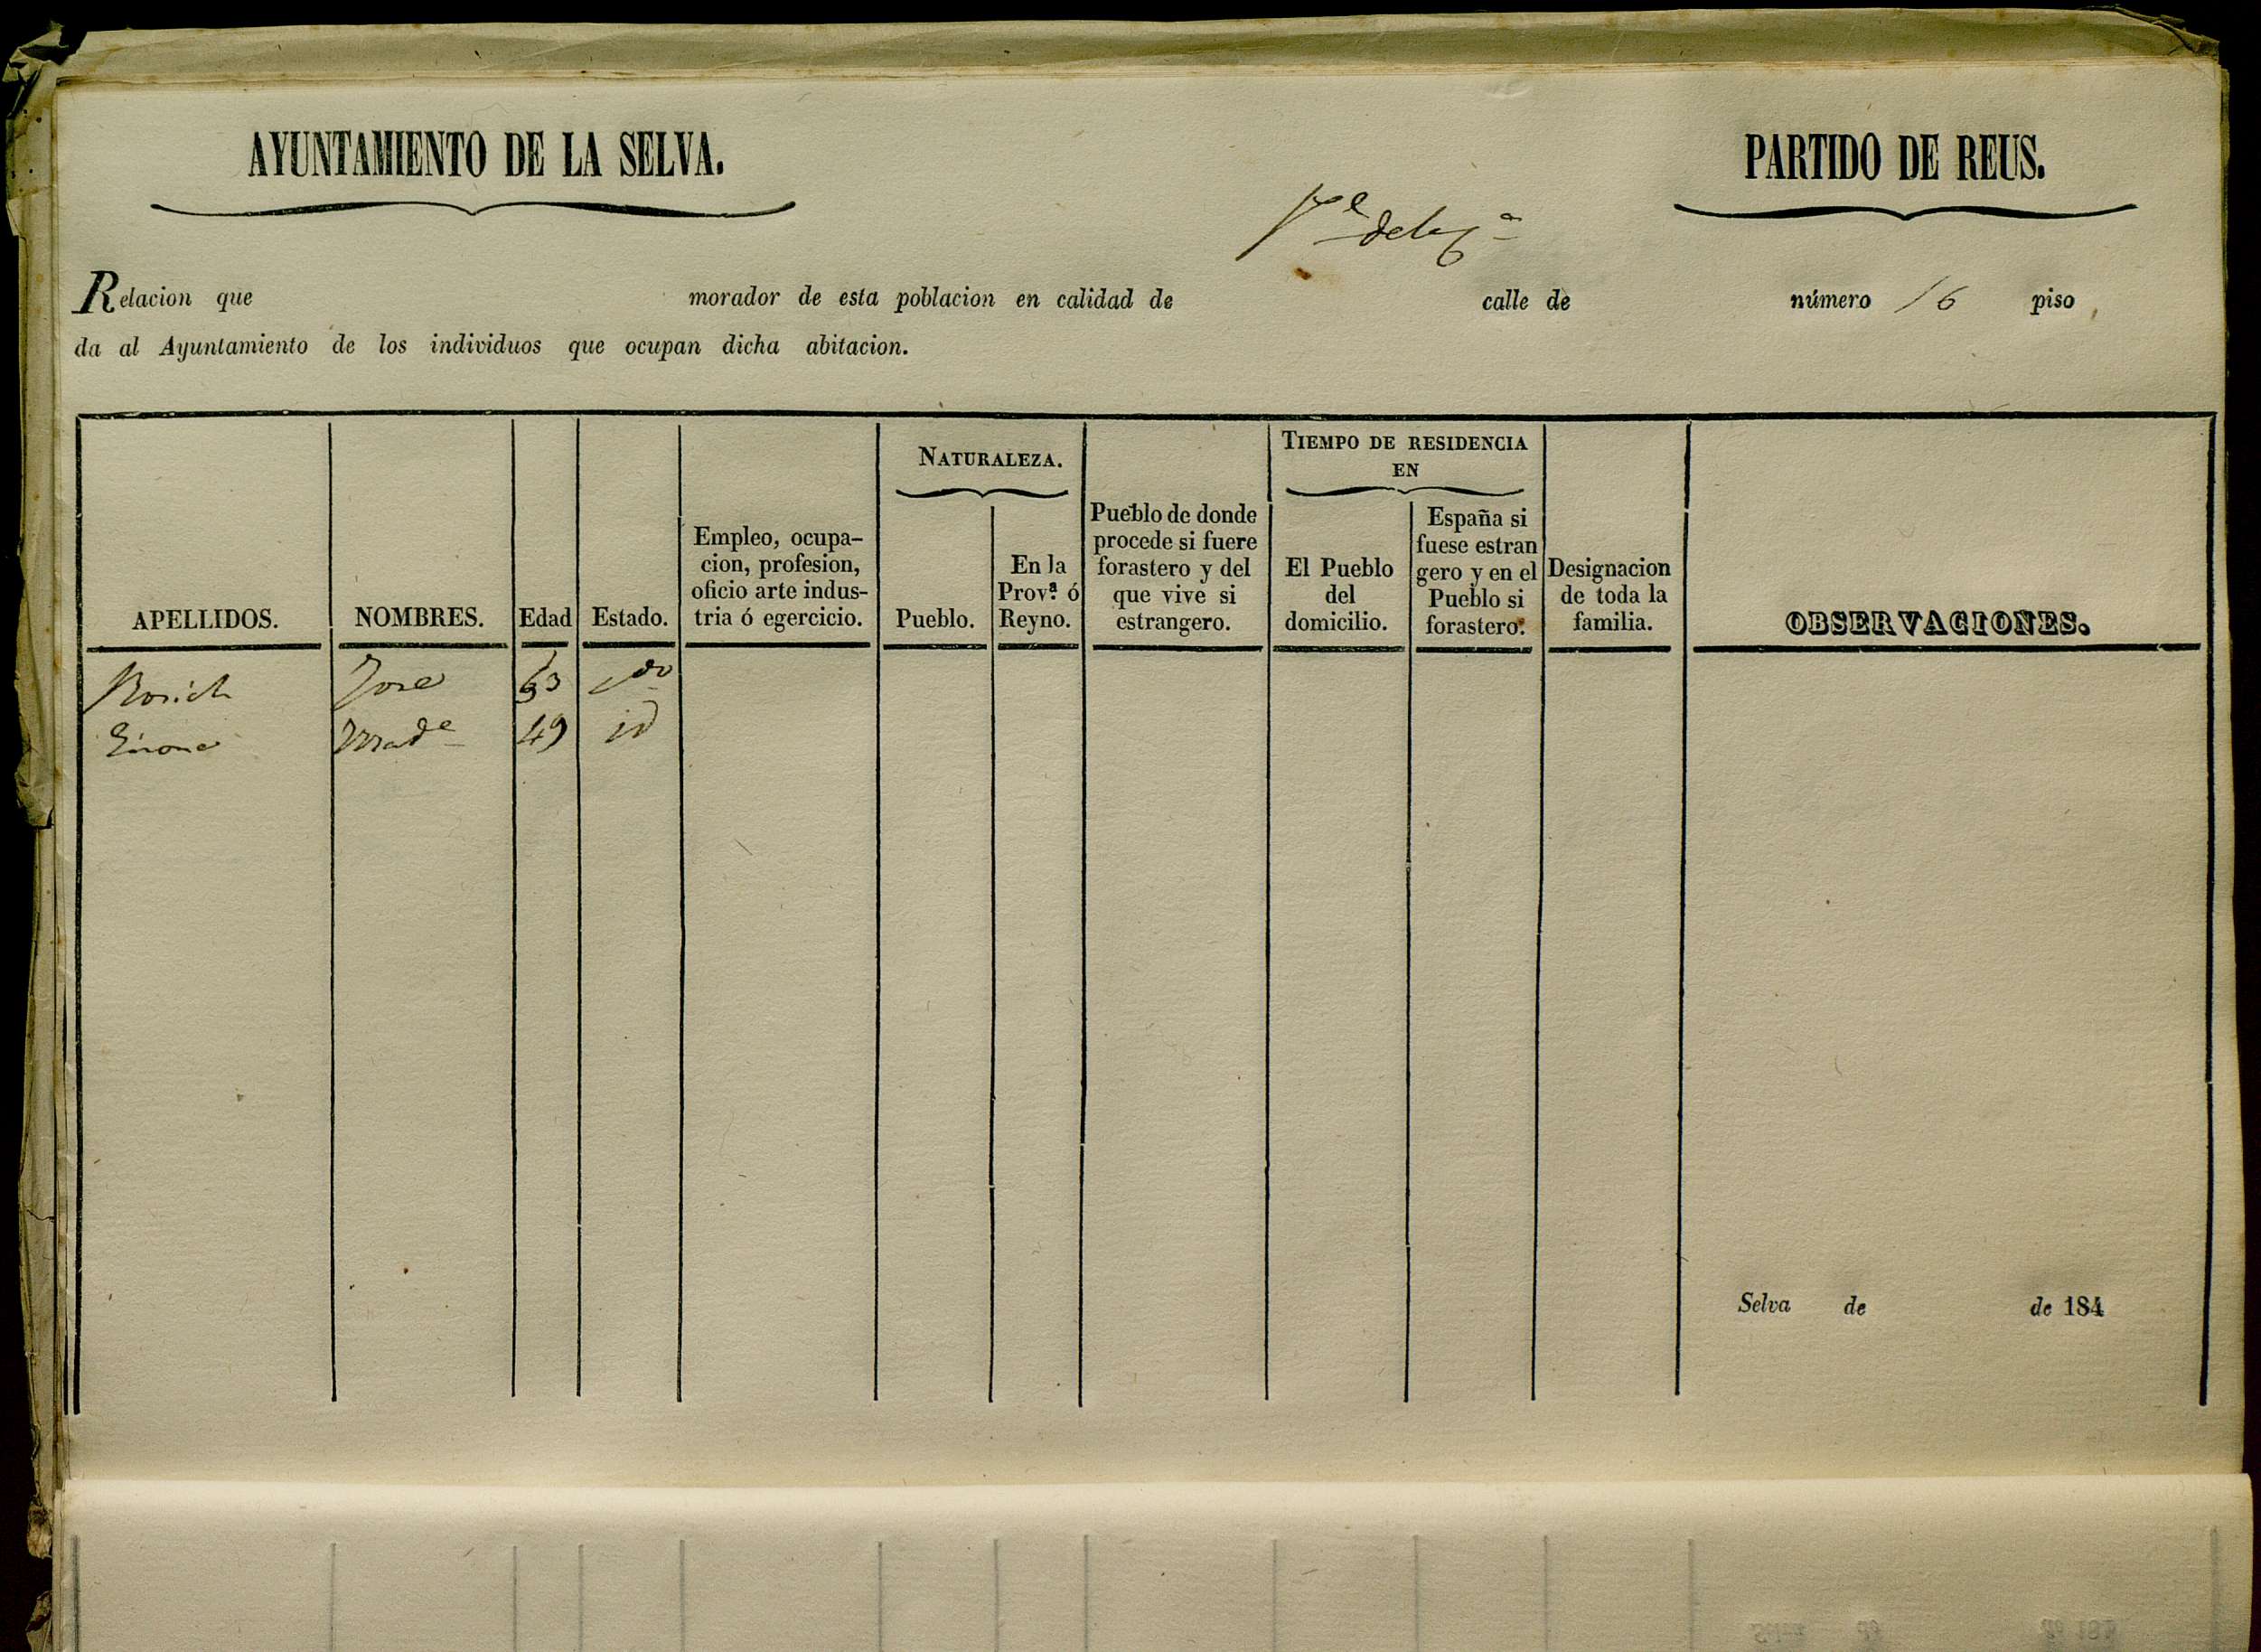 AYUNTAMIENTO DE LA SELVA.
PARTIDO DE REUS.
Relacion que morador de esta poblacion en calidad de calle de número 16 piso
da al Ayuntamiento de los individuos que ocupan dicha abitacion.
NATURALEZA.
TIEMPO DE RESIDENCIA
EN
APELLIDOS.
NOMBRES.
Edad
Estado.
Empleo, ocupa-
cion, profesion,
oficio arte indus-
tria ó egercicio.
Pueblo.
En la
Prov.ª ó
Reyno.
Pueblo de donde
procede si fuere
forastero y del
que vive si
estrangero.
El Pueblo
del
domicilio.
España si
fuese estran
gero y en el
Pueblo si
forastero.
Designacion
de toda la
familia.
OBSERVACIONES.
Rosich Jose 63 cdo
49 id
Selva de de 184